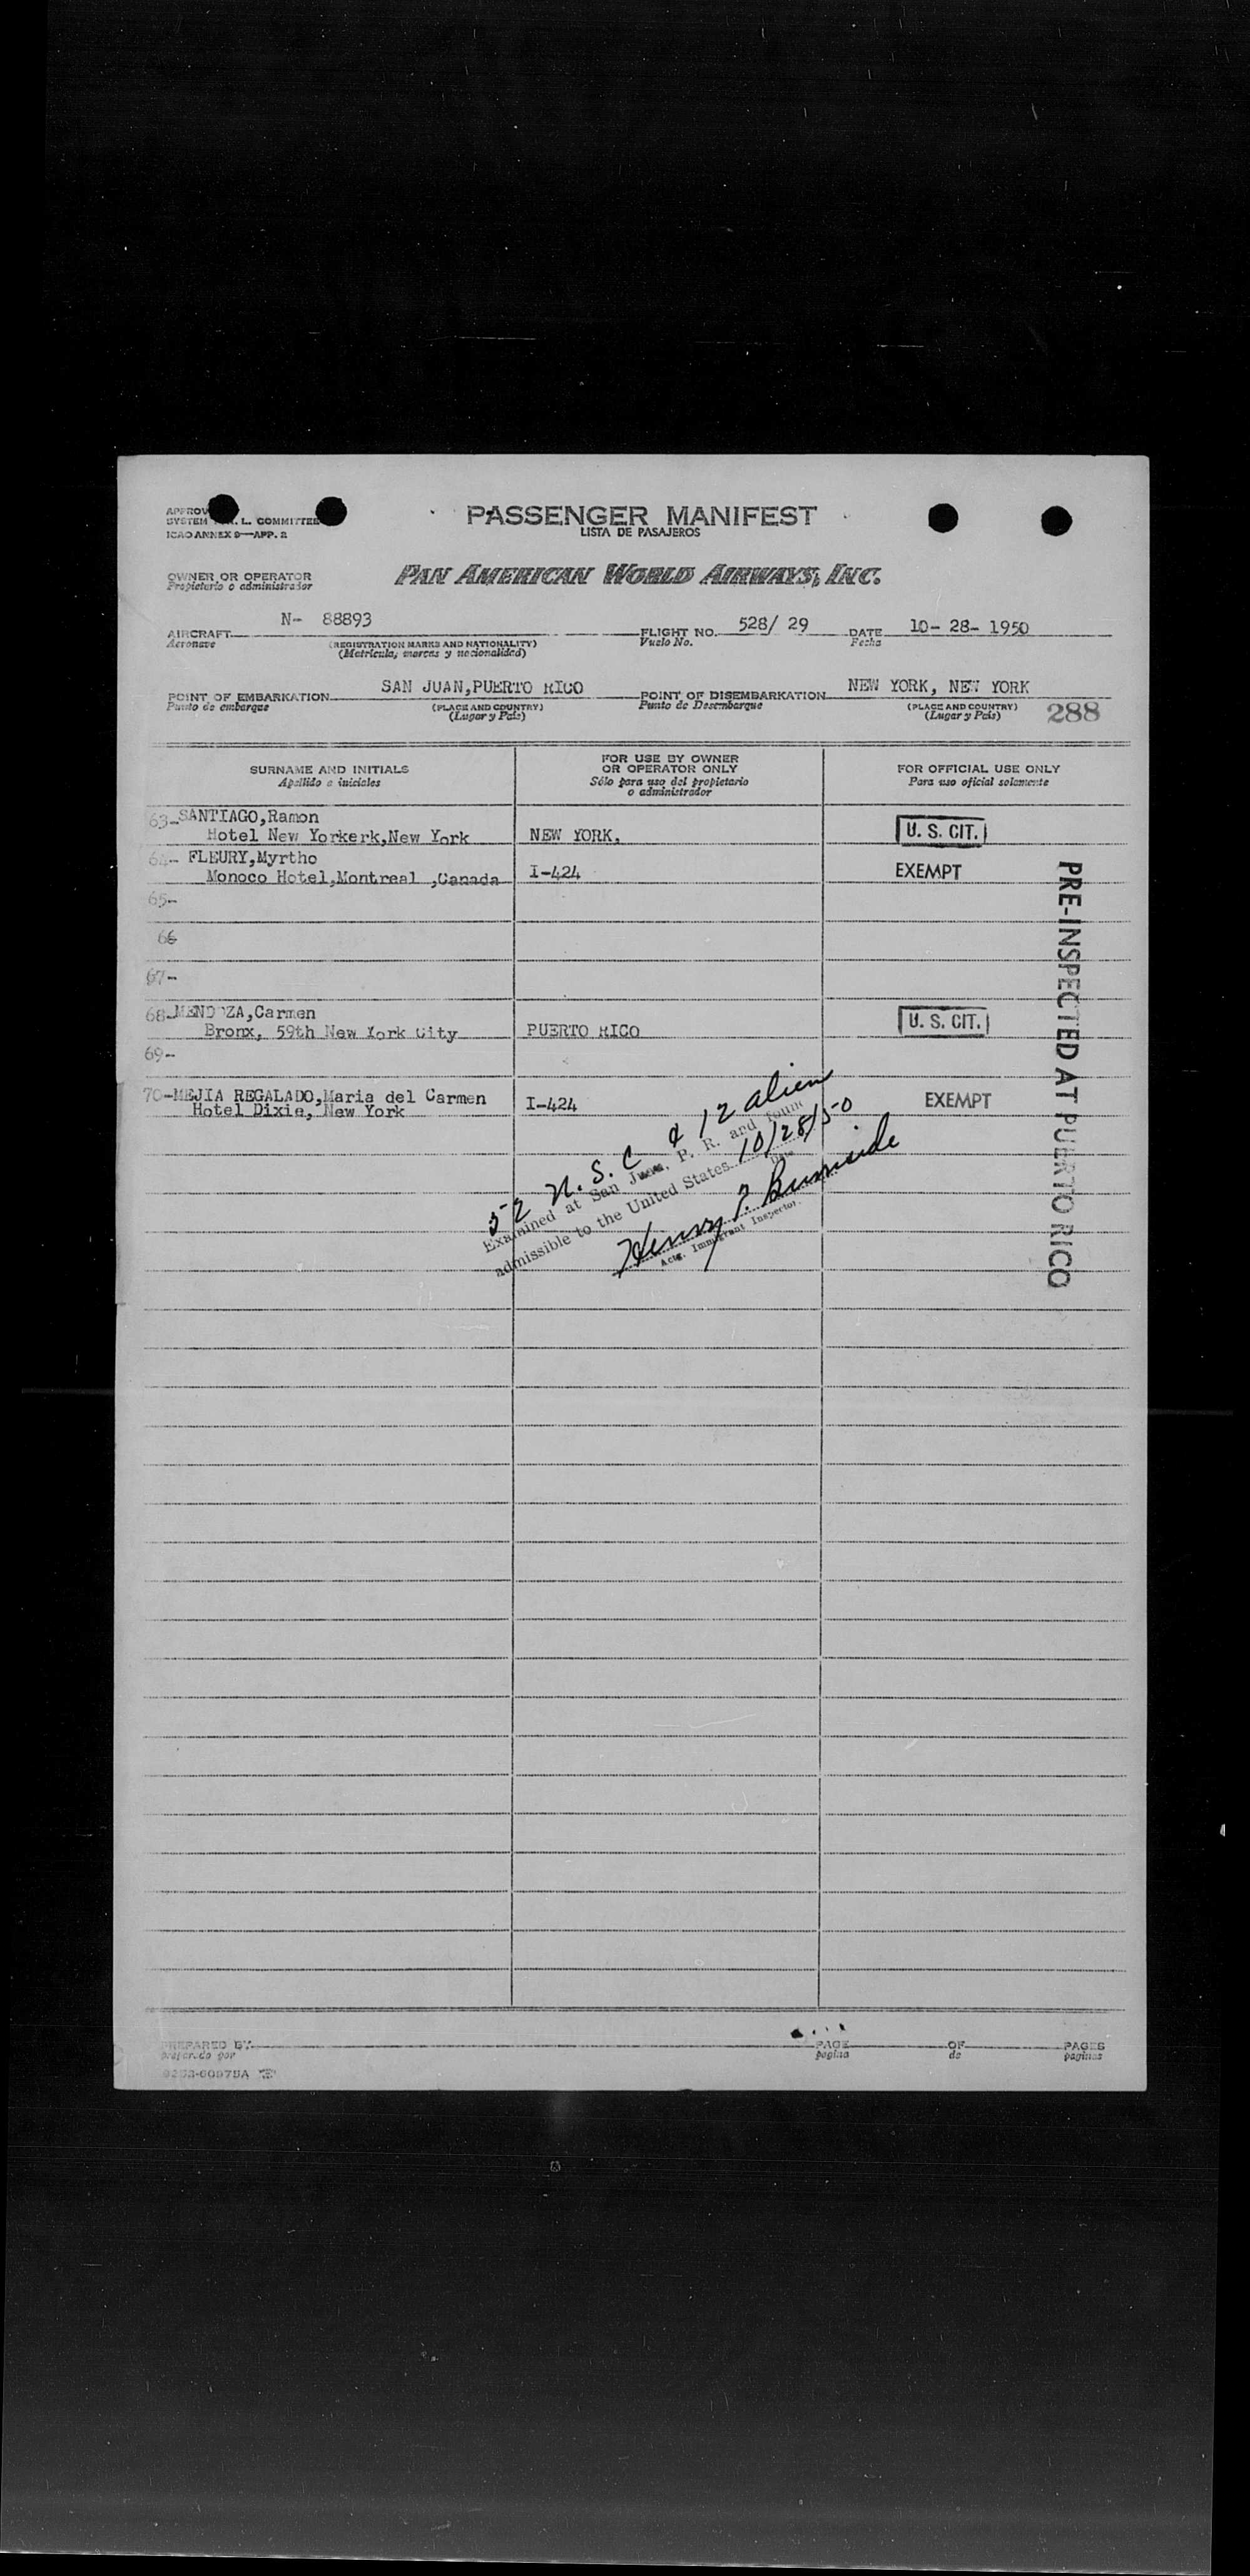 PASSENGER MANIFEST
LISTA DE PASAJEROS
APPROV
SYSTEM L. COMMITTEE
ICAO ANNEX 9—APP. 2
OWNER OR OPERATOR
Propietario o administrador
PAN AMERICAN WORLD AIRWAYS, INC.
AIRCRAFT N- 88893
Aeronave
(REGISTRATION MARKS AND NATIONALITY)
(Matrícula, marcas y nacionalidad)
FLIGHT NO. 528/ 29
Vuelo No.
DATE 10- 28- 1950
Fecha
POINT OF EMBARKATION SAN JUAN,PUERTO RICO
Punto de embarque
(PLACE AND COUNTRY)
(Lugar y País)
POINT OF DISEMBARKATION NEW YORK, NEW YORK
Punto de Desembarque
(PLACE AND COUNTRY)
(Lugar y País)
288
SURNAME AND INITIALS
Apellido e iniciales
FOR USE BY OWNER
OR OPERATOR ONLY
Sólo para uso del propietario
o administrador
FOR OFFICIAL USE ONLY
Para uso oficial solamente
63-SANTIAGO,Ramon
Hotel New Yorkerk,New York NEW YORK. U. S. CIT.
64- FLEURY,Myrtho
Monoco Hotel,Montreal ,Canada I-424 EXEMPT
65-
66
67-
68-MENDOZA,Carmen
Bronx, 59th New York City PUERTO RICO U. S. CIT.
69-
70-MEJIA REGALADO,Maria del Carmen
Hotel Dixie, New York I-424 EXEMPT
PRE-INSPECTED AT PUERTO RICO
52 U. S. C & 12 alien
Examined at San Juan, P. R. and found
admissible to the United States 10/28/50
Date
Henry P. Burnside
Actg. Immigrant Inspector.
PREPARED BY
preparado por
PAGE OF PAGES
pagina de paginas